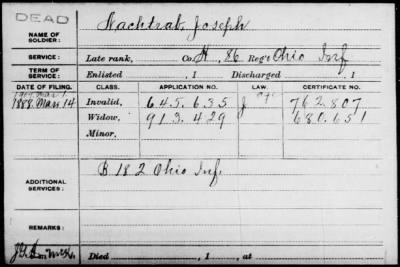 DEAD
NAME OF SOLDIER: Nachtrab, Joseph
SERVICE: Late rank, Co. H, 86 Reg't Ohio Inf
TERM OF SERVICE: Enlisted , 1 Discharged , 1
DATE OF FILING. CLASS. APPLICATION NO. LAW. CERTIFICATE NO.
1888 Mar 14 Invalid, 645.635 J 762.807
Widow, 913.429 680.651
Minor,
ADDITIONAL SERVICES: B 182 Ohio Inf.
REMARKS:
Died , 1 , at